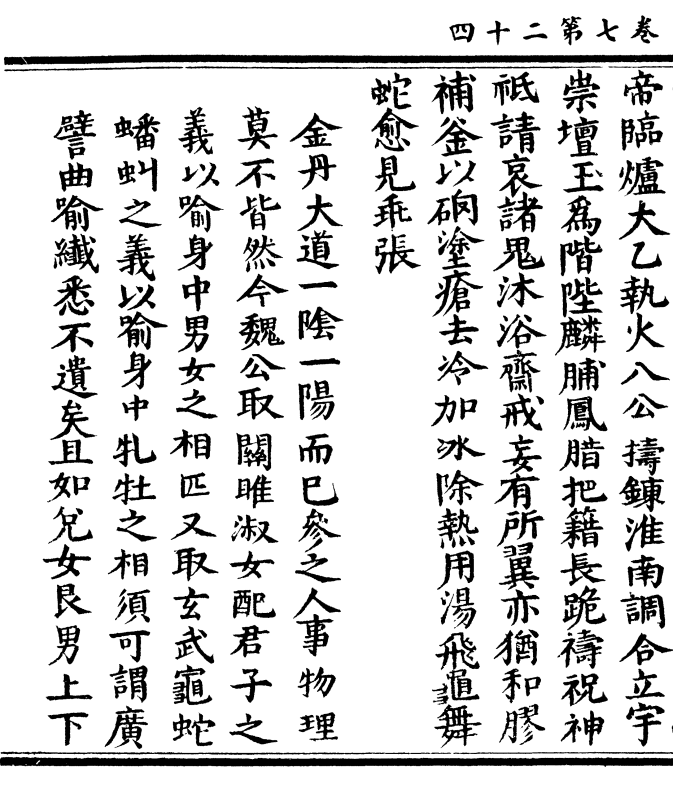 卷七第二十四
帝臨爐大乙執火八公擣鍊淮南調合立宇
崇壇玉爲階陛麟脯鳳腊把籍長跪禱祝神
祗請哀諸鬼沐浴齋戒妄有所翼亦猶和膠
補釜以硇塗瘡去冷加冰除熱用湯飛龜舞
蛇愈見乖張
金丹大道一陰一陽而已參之人事物理
莫不皆然今魏公取關雎淑女配君子之
義以喻身中男女之相匹又取玄武龜蛇
蟠虯之義以喻身中牝牡之相須可謂廣
譬曲喻纖悉不遺矣且如兌女艮男上下